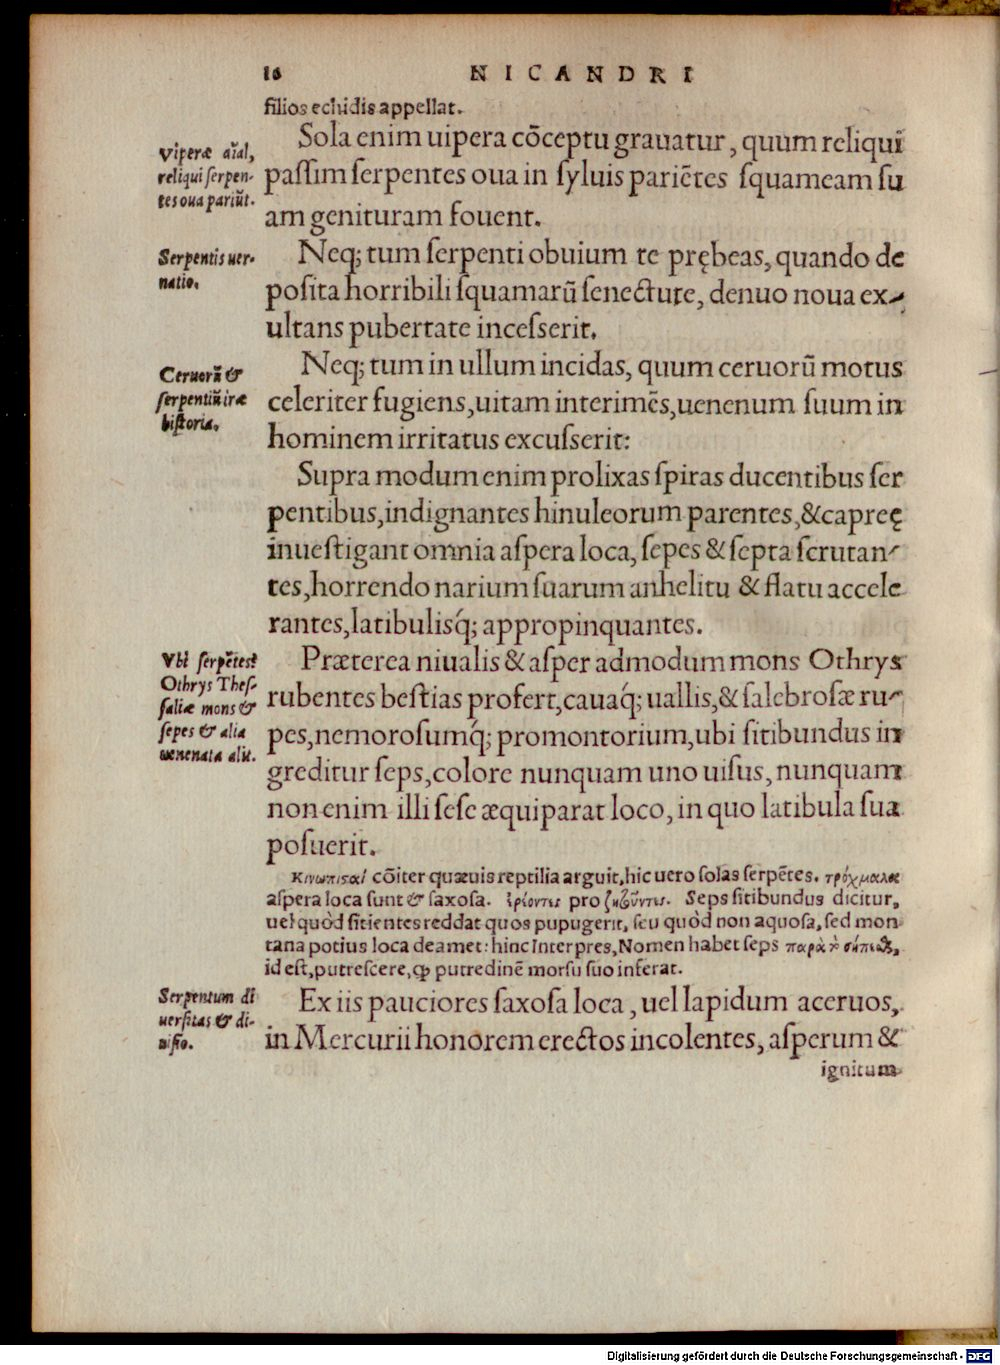 16 NICANDRI
filios echidis appellat.
Viperæ aīal,
reliqui serpen-
tes oua pariūt.
Sola enim uipera cōceptu grauatur, quum reliqui
passim serpentes oua in syluis pariētes squameam su
am genituram fouent.
Serpentis uer-
natio.
Neq; tum serpenti obuium te prębeas, quando de
posita horribili squamarū senecture, denuo noua ex-
ultans pubertate incesserit.
Ceruorū &
serpentiū iræ
historia.
Neq; tum in ullum incidas, quum ceruorū motus
celeriter fugiens, uitam interimēs, uenenum suum in
hominem irritatus excusserit:
Supra modum enim prolixas spiras ducentibus ser
pentibus, indignantes hinuleorum parentes, & capreę
inuestigant omnia aspera loca, sepes & septa scrutan-
tes, horrendo narium suarum anhelitu & flatu accele
rantes, latibulisq́; appropinquantes.
Vbi serpētes?
Othrys Thes-
saliæ mons &
sepes & alia
uenenata alit.
Præterea niualis & asper admodum mons Othrys
rubentes bestias profert, cauaq́; uallis, & salebrosæ ru-
pes, nemorosumq́; promontorium, ubi sitibundus in
greditur seps, colore nunquam uno uisus, nunquam
non enim illi sese æquiparat loco, in quo latibula sua
posuerit.
κινωπισαὶ cōiter quæuis reptilia arguit, hic uero solas serpētes. τρόχμαλοι
aspera loca sunt & saxosa. ἐρίοντες pro ζητοῦντες. Seps sitibundus dicitur,
uel quòd sitientes reddat quos pupugerit, seu quòd non aquosa, sed mon
tana potius loca deamet: hinc Interpres, Nomen habet seps παρὰ τὸ σήπεσθ,
id est, putrescere, ꝙ putredinē morsu suo inferat.
Serpentum di
uersitas & di-
uisio.
Ex iis pauciores saxosa loca, uel lapidum aceruos,
in Mercurii honorem erectos incolentes, asperum &
ignitum
Digitalisierung gefördert durch die Deutsche Forschungsgemeinschaft - DFG